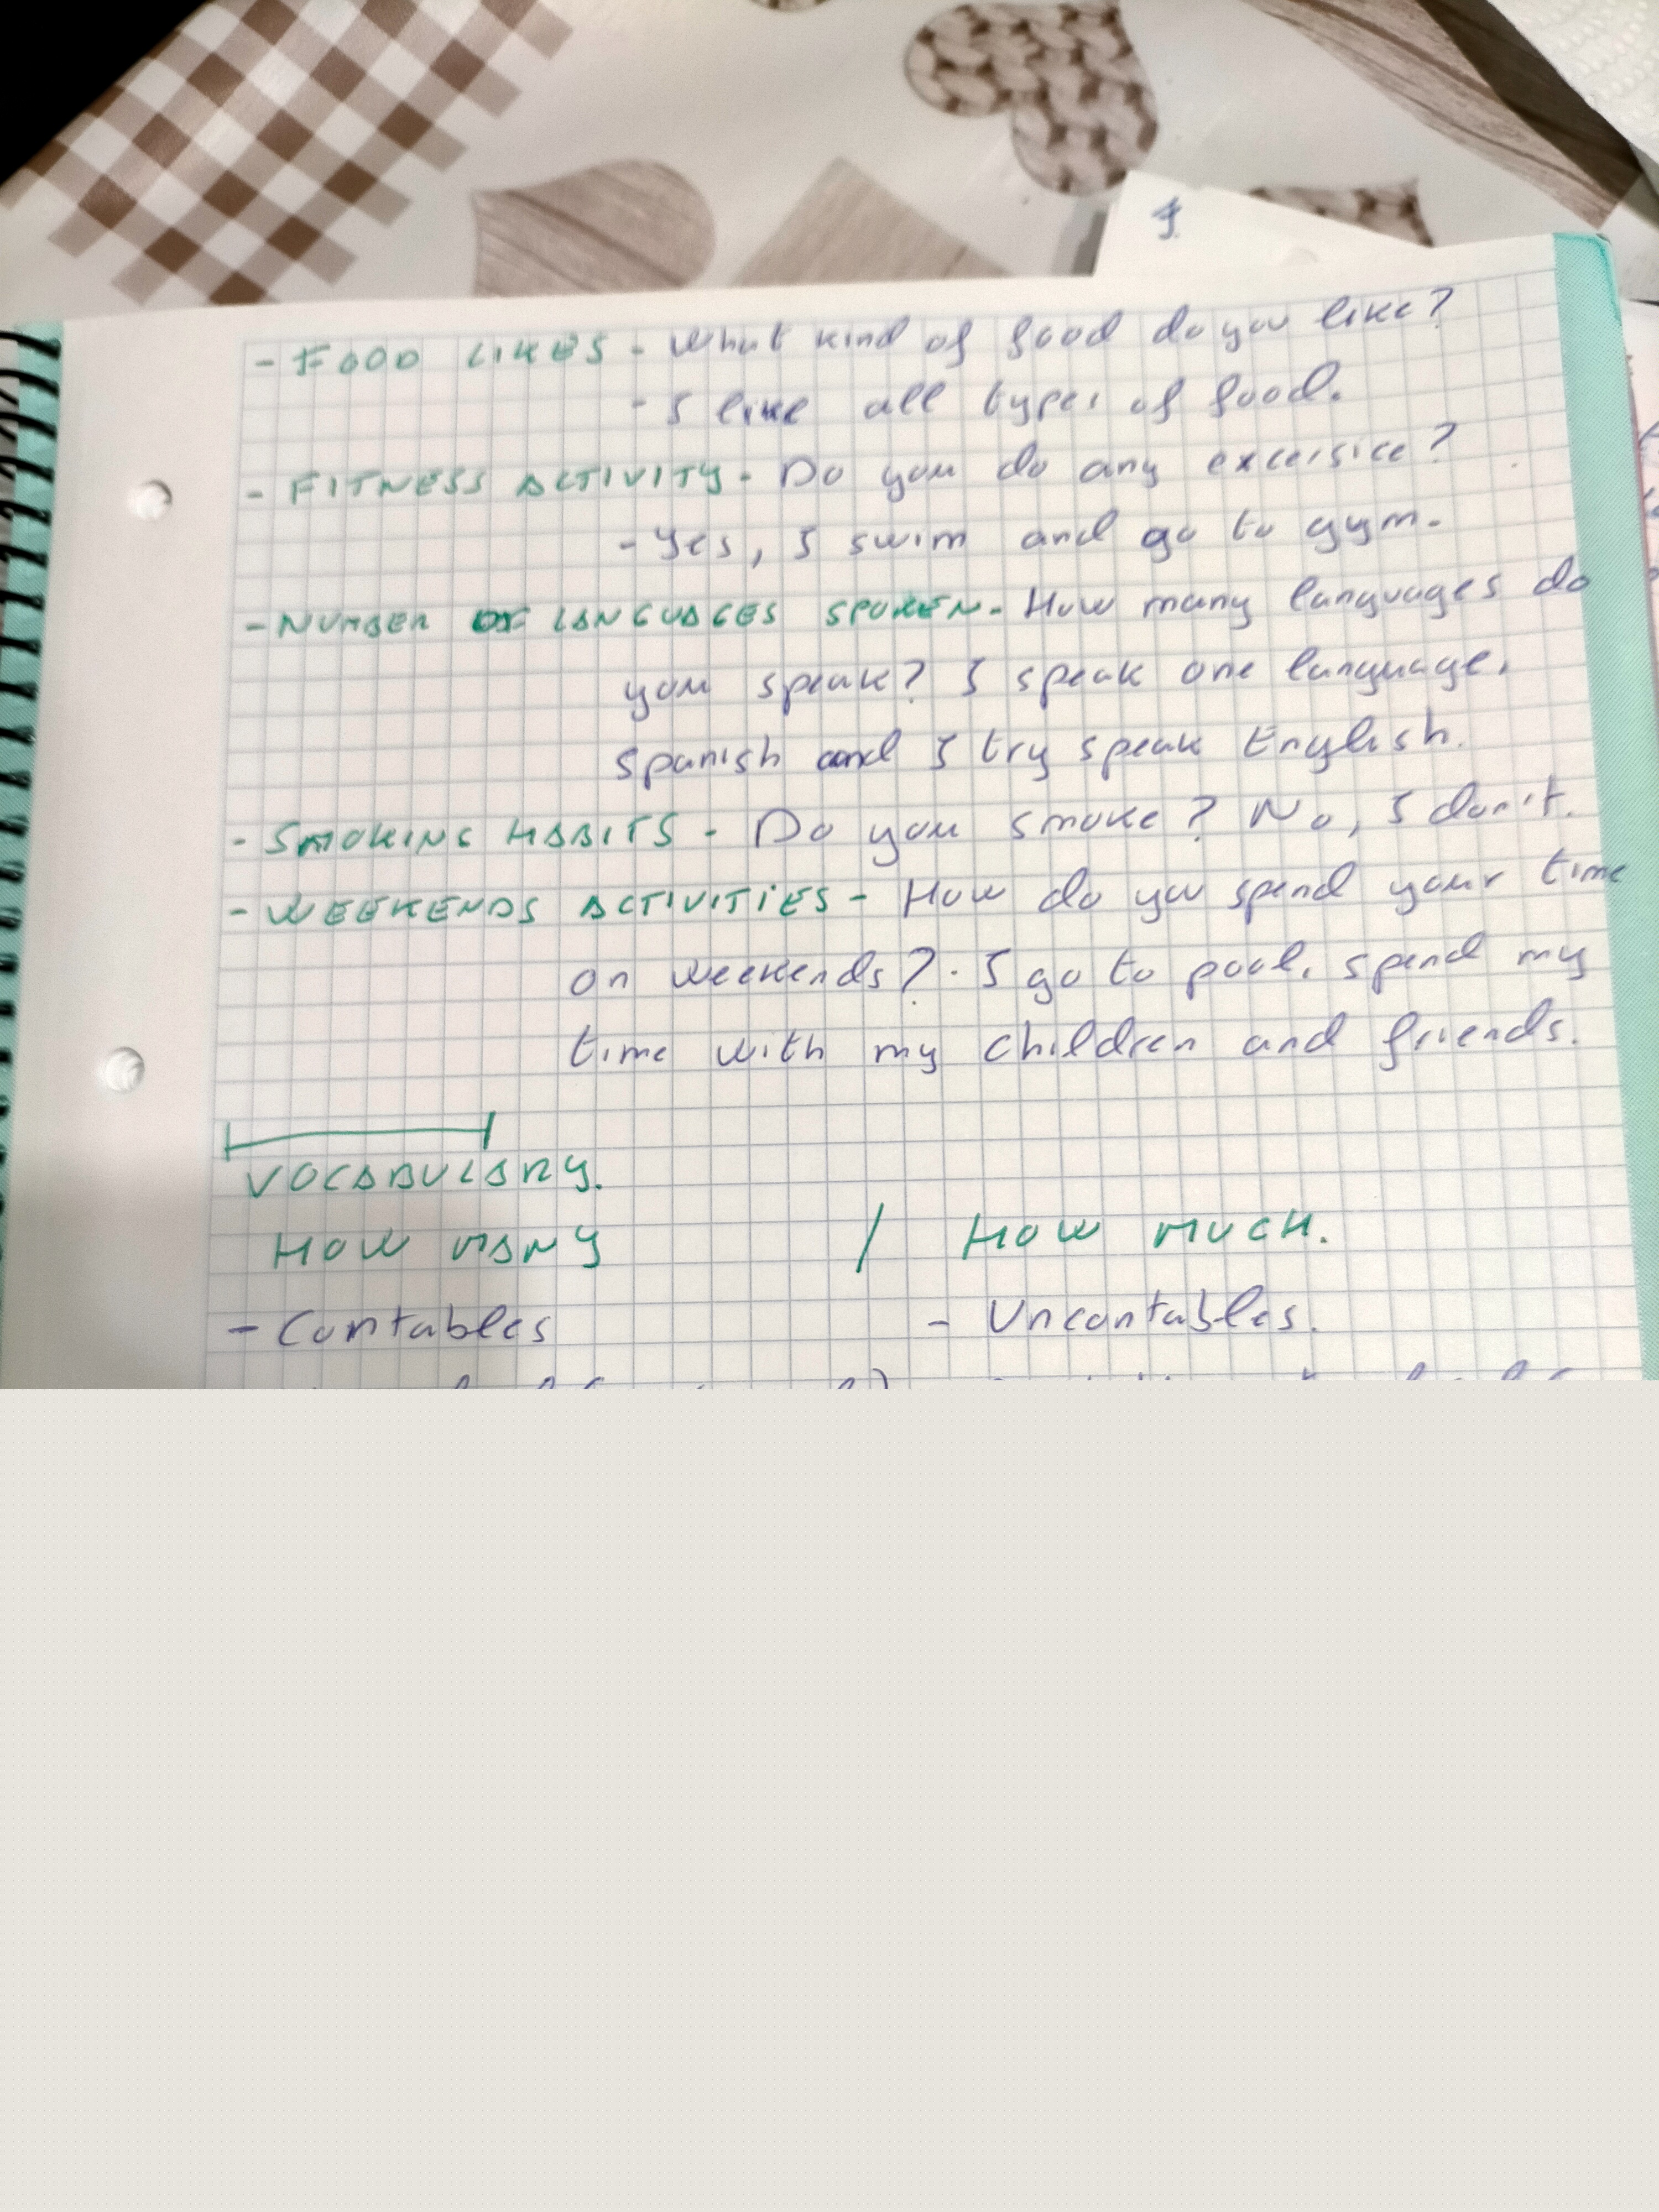 - FOOD LIKES - What kind of food do you like?
- I like all types of food.
- FITNESS ACTIVITY - Do you do any excersice?
- Yes, I swim and go to gym.
- NUMBER OF LANGUAGES SPOKEN - How many languages do
you speak? I speak one language,
spanish and I try speak English.
- SMOKING HABITS - Do you smoke? No, I don't.
- WEEKENDS ACTIVITIES - How do you spend your time
on weekends? - I go to pool, spend my
time with my children and friends.
VOCABULARY.
HOW MANY / HOW MUCH.
- Contables - Uncontables.